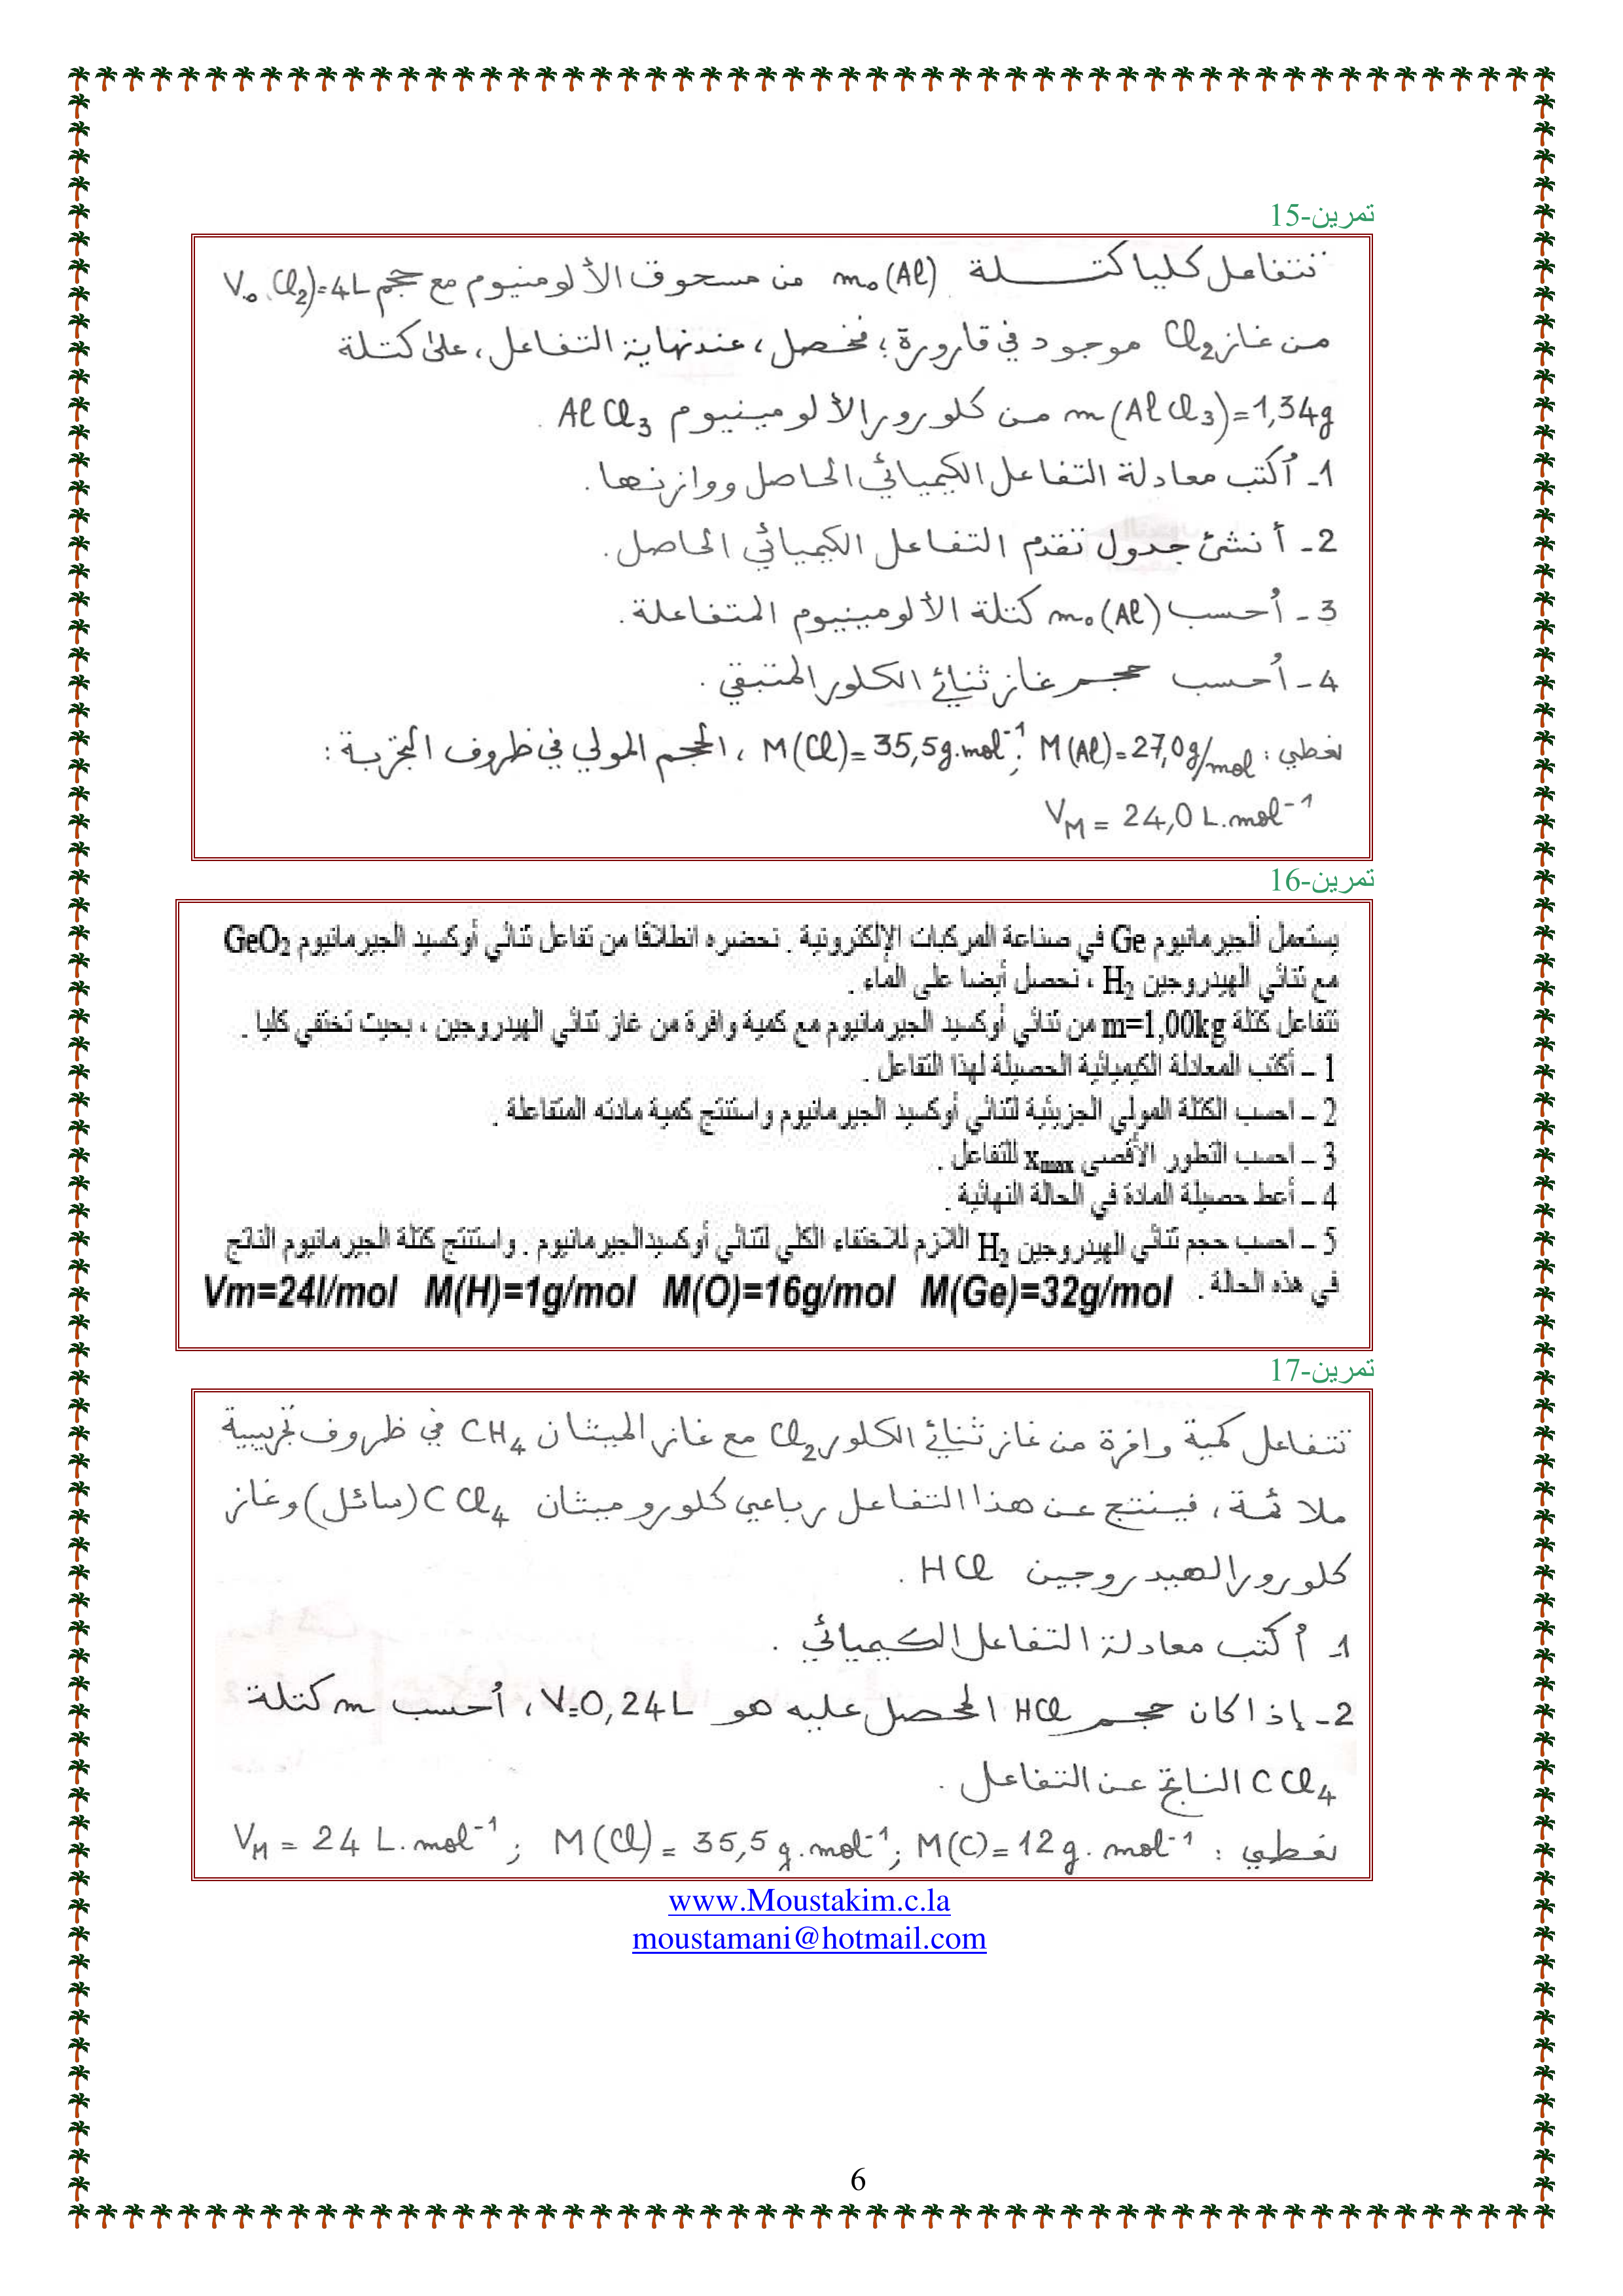 تمرين-15
تتفاعل كليا كتلة m₀(Al) من مسحوق الألومنيوم مع حجم V₀(Cl₂)=4L
من غاز Cl₂ موجود في قارورة؛ فنحصل، عند نهاية التفاعل، على كتلة
m(AlCl₃)=1,34g من كلورور الألومينيوم AlCl₃ .
1- أكتب معادلة التفاعل الكيميائي الحاصل ووازنها.
2- أنشئ جدول تقدم التفاعل الكيميائي الحاصل.
3- أحسب m₀(Al) كتلة الألومينيوم المتفاعلة.
4- أحسب حجم غاز ثنائي الكلور المتبقي.
نعطي: M(Al)=27,0g/mol ; M(Cl)=35,5g.mol⁻¹ ، الحجم المولي في ظروف التجربة:
V_M = 24,0 L.mol⁻¹
تمرين-16
يستعمل الجيرمانيوم Ge في صناعة المركبات الإلكترونية . نحضره انطلاقا من تفاعل ثنائي أوكسيد الجيرمانيوم GeO₂
مع ثنائي الهيدروجين H₂ ، نحصل أيضا على الماء .
تتفاعل كتلة m=1,00kg من ثنائي أوكسيد الجيرمانيوم مع كمية وافرة من غاز ثنائي الهيدروجين ، بحيث تختفي كليا .
1 – أكتب المعادلة الكيميائية الحصيلة لهذا التفاعل .
2 – احسب الكتلة المولي الجزيئية لثنائي أوكسيد الجيرمانيوم واستنتج كمية مادته المتفاعلة .
3 – احسب التطور الأقصى xmax للتفاعل .
4 – أعط حصيلة المادة في الحالة النهائية .
5 – احسب حجم ثنائي الهيدروجين H₂ اللازم للاختفاء الكلي لثنائي أوكسيدالجيرمانيوم . واستنتج كتلة الجيرمانيوم الناتج
في هذه الحالة . Vm=24l/mol M(H)=1g/mol M(O)=16g/mol M(Ge)=32g/mol
تمرين-17
تتفاعل كمية وافرة من غاز ثنائي الكلور Cl₂ مع غاز الميثان CH₄ في ظروف تجريبية
ملائمة، فينتج عن هذا التفاعل رباعي كلوروميثان CCl₄ (سائل) وغاز
كلورور الهيدروجين HCl .
1- أكتب معادلة التفاعل الكيميائي .
2- إذا كان حجم HCl المحصل عليه هو V=0,24L ، أحسب m كتلة
CCl₄ الناتج عن التفاعل .
نعطي : V_M = 24 L.mol⁻¹ ; M(Cl) = 35,5 g.mol⁻¹ ; M(C)=12g.mol⁻¹
www.Moustakim.c.la
moustamani@hotmail.com
6